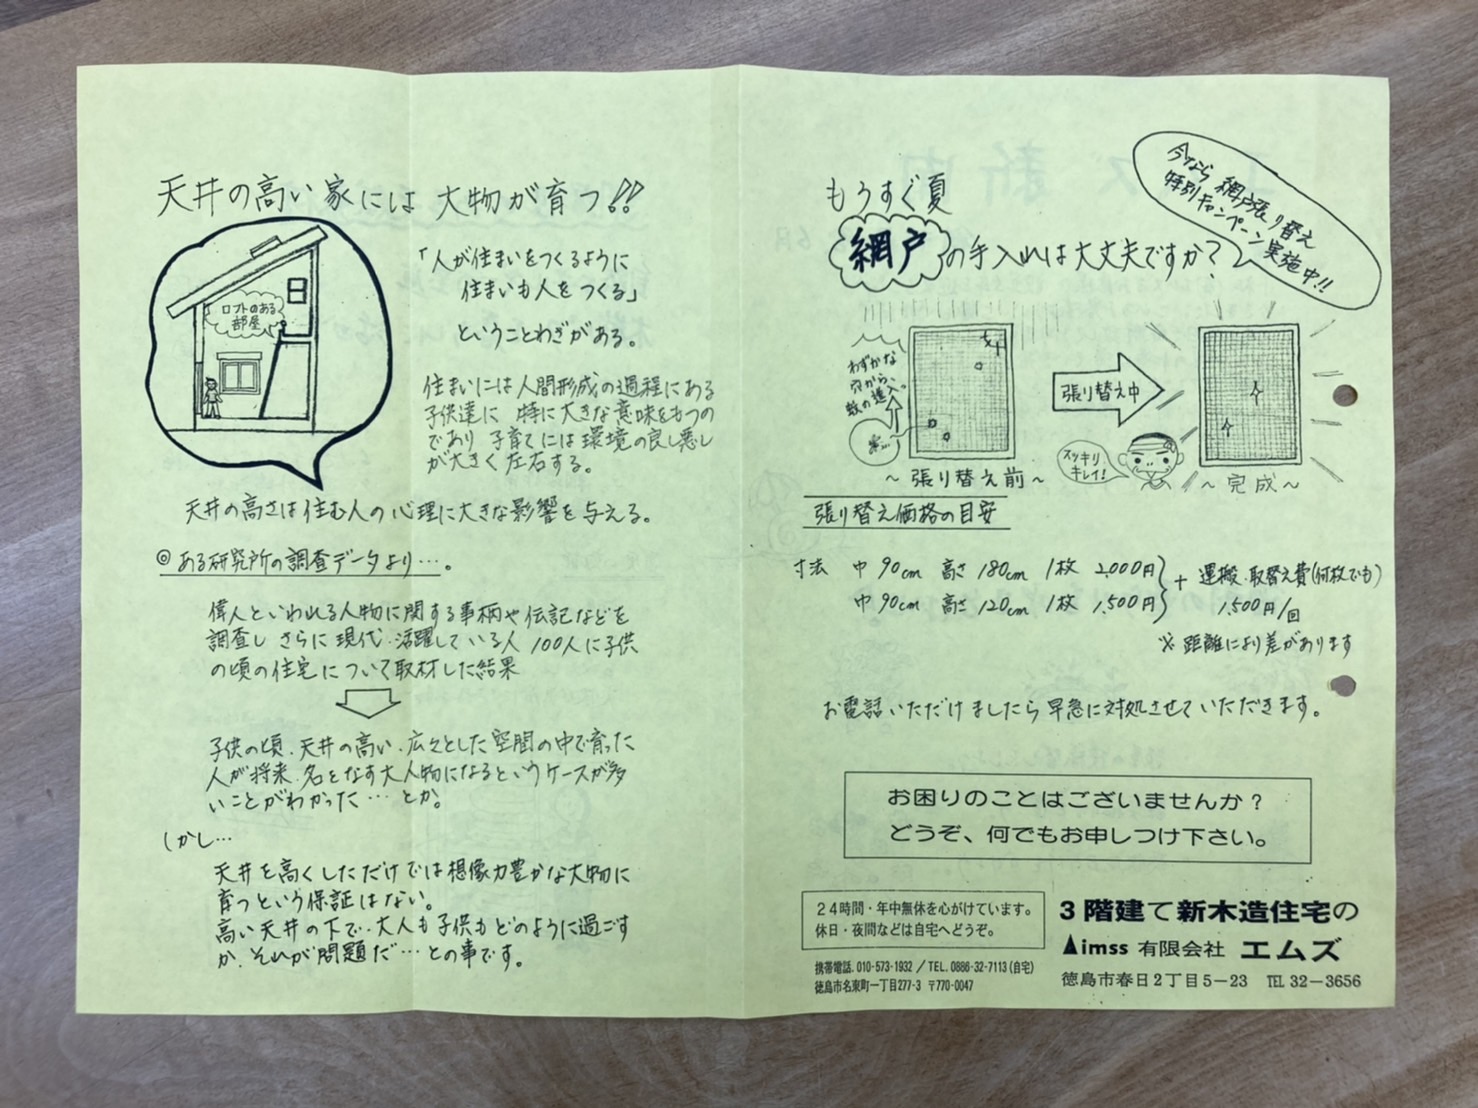 天井の高い家には大物が育つ!!
ロフトのある
部屋
「人が住まいをつくるように
住まいも人をつくる」
ということわざがある。
住まいには人間形成の過程にある
子供達に 特に大きな意味をもつの
であり 子育てには環境の良し悪し
が大きく左右する。
天井の高さは住む人の心理に大きな影響を与える。
◎ある研究所の調査データより…。
偉人といわれる人物に関する事柄や伝記などを
調査し さらに現代・活躍している人 100人に子供
の頃の住宅について取材した結果
子供の頃、天井の高い、広々とした空間の中で育った
人が将来、名をなす大人物になるというケースが多
いことがわかった…とか。
しかし…
天井を高くしただけでは想像力豊かな大物に
育つという保証はない。
高い天井の下で、大人も子供もどのように過ごす
か、それが問題だ…との事です。
もうすぐ夏
網戸の手入れは大丈夫ですか?
今なら 網戸張り替え
特別キャンペーン実施中!!
わずかな
穴から
蚊の進入。
張り替え中
スッキリ
キレイ!
～張り替え前～
～完成～
張り替え価格の目安
寸法 巾 90cm 高さ 180cm 1枚 2,000円
巾 90cm 高さ 120cm 1枚 1,500円
+ 運搬・取替え費(何枚でも)
1,500円/回
※距離により差があります
お電話いただけましたら早急に対処させていただきます。
お困りのことはございませんか?
どうぞ、何でもお申しつけ下さい。
24時間・年中無休を心がけています。
休日・夜間などは自宅へどうぞ。
携帯電話. 010-573-1932 / TEL. 0886-32-7113 (自宅)
徳島市名東町一丁目277-3 〒770-0047
3階建て新木造住宅の
Aimss 有限会社 エムズ
徳島市春日2丁目5－23 TEL 32－3656